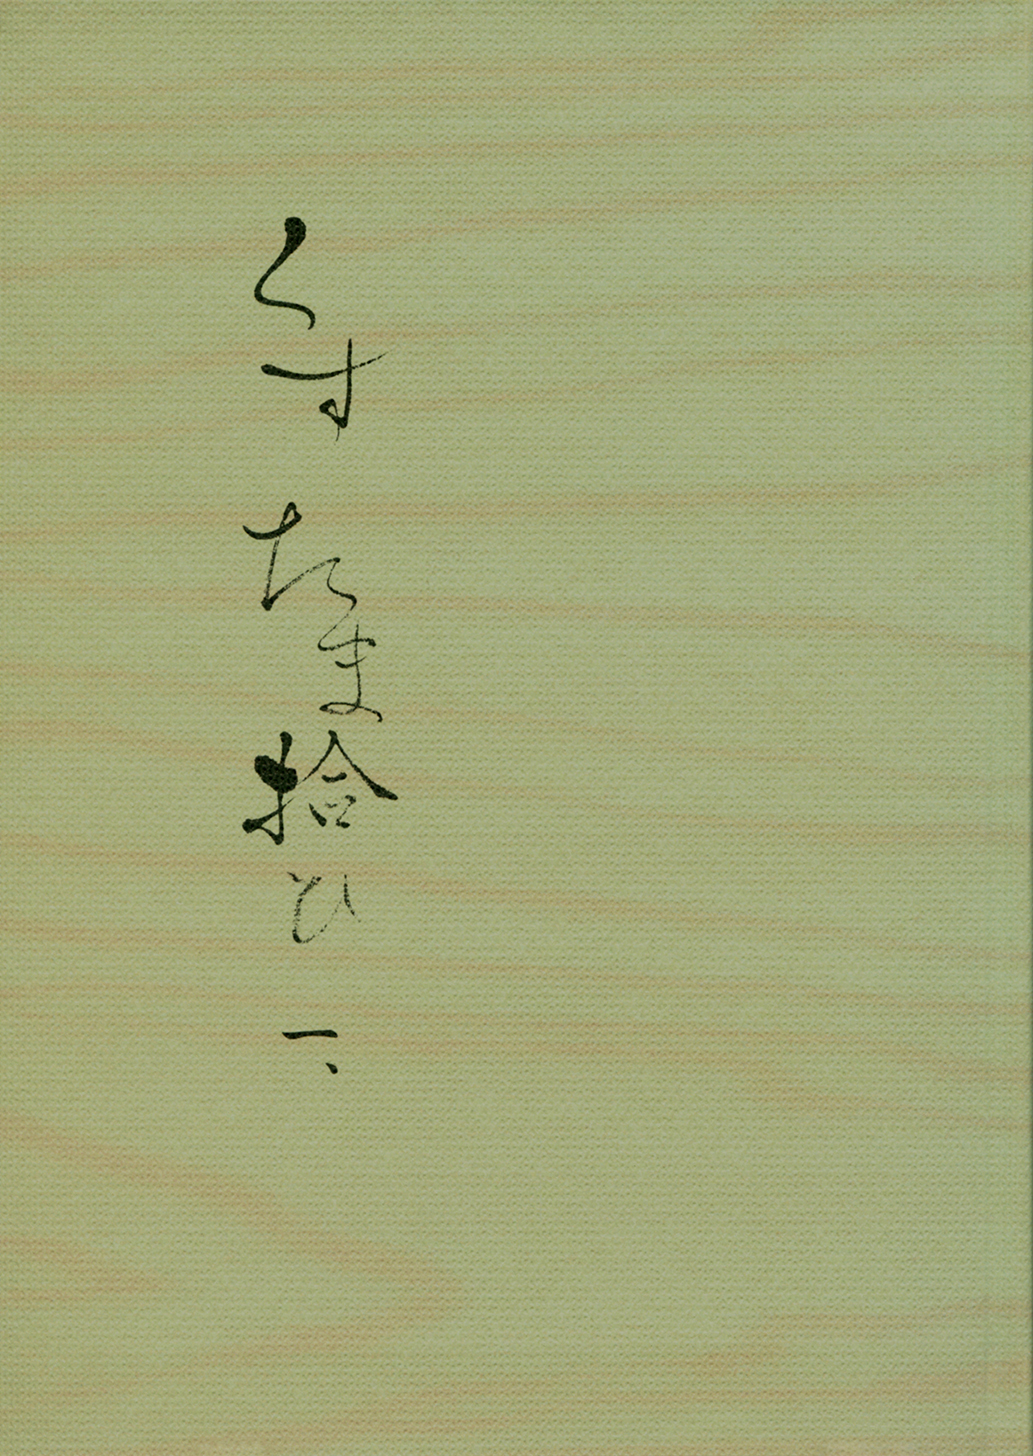 くす たま拾ひ 一、